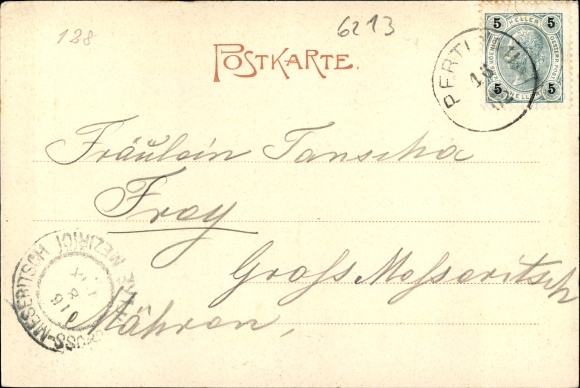 128
6213
POSTKARTE.
5 HELLER 5
5 HELLER 5
PERTL
Fräulein Tanscha
Frey
Gross Messeritsch
Mähren,
GROSS-MESERITSCH
MEZIŘIČÍ